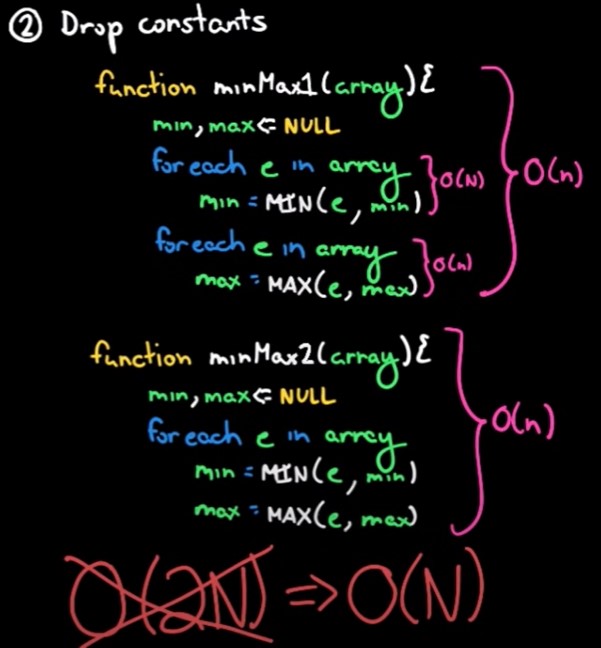 ② Drop constants
function minMax1(array){
min, max ⇐ NULL
foreach e in array
min = MIN(e, min)
} O(N)
foreach e in array
max = MAX(e, max)
} O(n)
} O(n)
function minMax2(array){
min, max ⇐ NULL
foreach e in array
min = MIN(e, min)
max = MAX(e, max)
} O(n)
O(2N) => O(N)